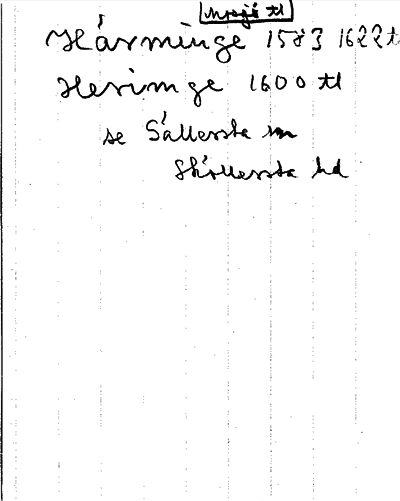 Härminge 1583 1622 t
Herimge 1600 tl
se Sällersta sn
Sköllersta hd